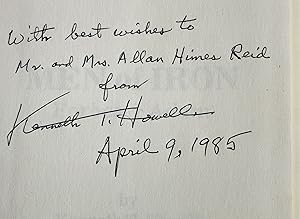 With best wishes to
Mr. and Mrs. Allan Himes Reid
from
Kenneth T. Howell
April 9, 1985